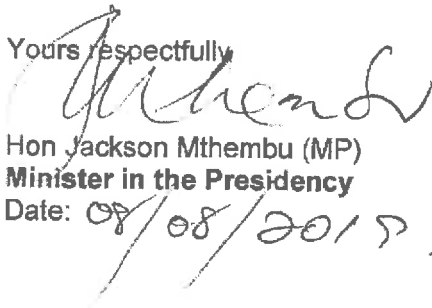 Yours respectfully
Hon Jackson Mthembu (MP)
Minister in the Presidency
Date: 08/08/2019